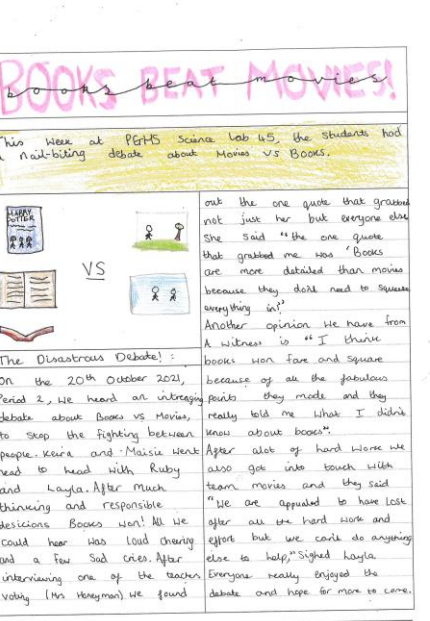 BOOKS BEAT MOVIES!
books beat movies
This week at PGHS Science Lab 45, the students had
a nail-biting debate about Movies vs Books.
HARRY
POTTER
VS
The Disastrous Debate! :
On the 20th October 2021,
Period 2, we heard an intreaging
debate about Books vs Movies,
to stop the fighting between
people. Keira and Maisie went
head to head with Ruby
and Layla. After much
thinking and responsible
desicions Books won! All we
could hear was loud cheering
and a few sad cries. After
interviewing one of the teachers
voting (Mrs Honeyman) we found
out the one quote that grabbed
not just her but everyone else
She said "the one quote
that grabbed me was 'Books
are more detailed than movies
because they don't need to squeeze
everything in!'
Another opinion we have from
A witness is "I think
books won fare and square
because of all the fabulous
points they made and they
really told me what I didn't
know about books".
After alot of hard work we
also got into touch with
team movies and they said
"We are appauled to have lost
after all the hard work and
effort but we can't do anything
else to help," Sighed Layla.
Everyone really enjoyed the
debate and hope for more to come.